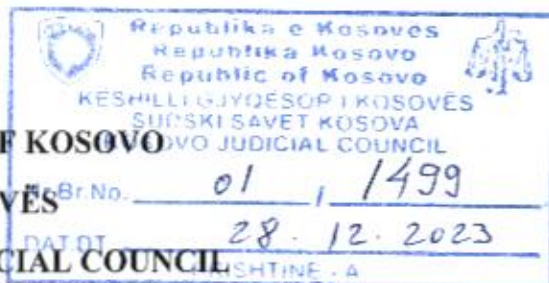 Republika e Kosovës
Republika Kosovo
Republic of Kosovo
KËSHILLI GJYQËSOR I KOSOVËS
SUDSKI SAVET KOSOVA
F KOSOVO
KOSOVO JUDICIAL COUNCIL
Nr.Br.No. 01 / 1499
VËS
DAT.DT. 28. 12. 2023
CIAL COUNCIL
PRISHTINË - A